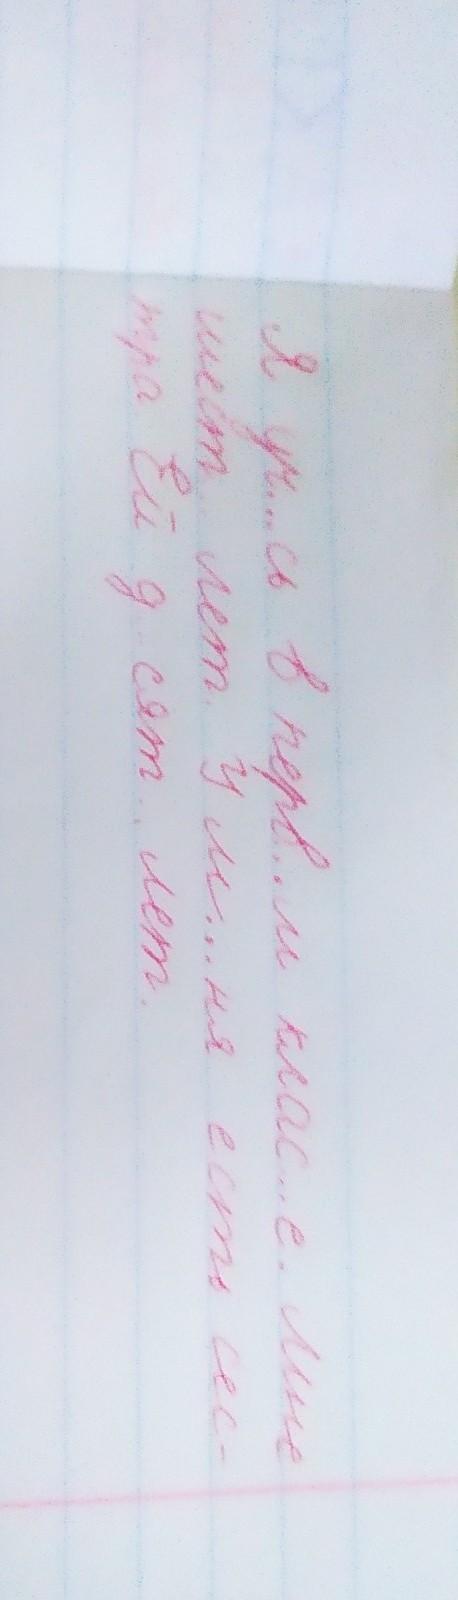 Я уч...сь в перв...м клас...е. Мне
шест.. лет. У м...ня есть сес-
тра Ей д..сят.. лет.